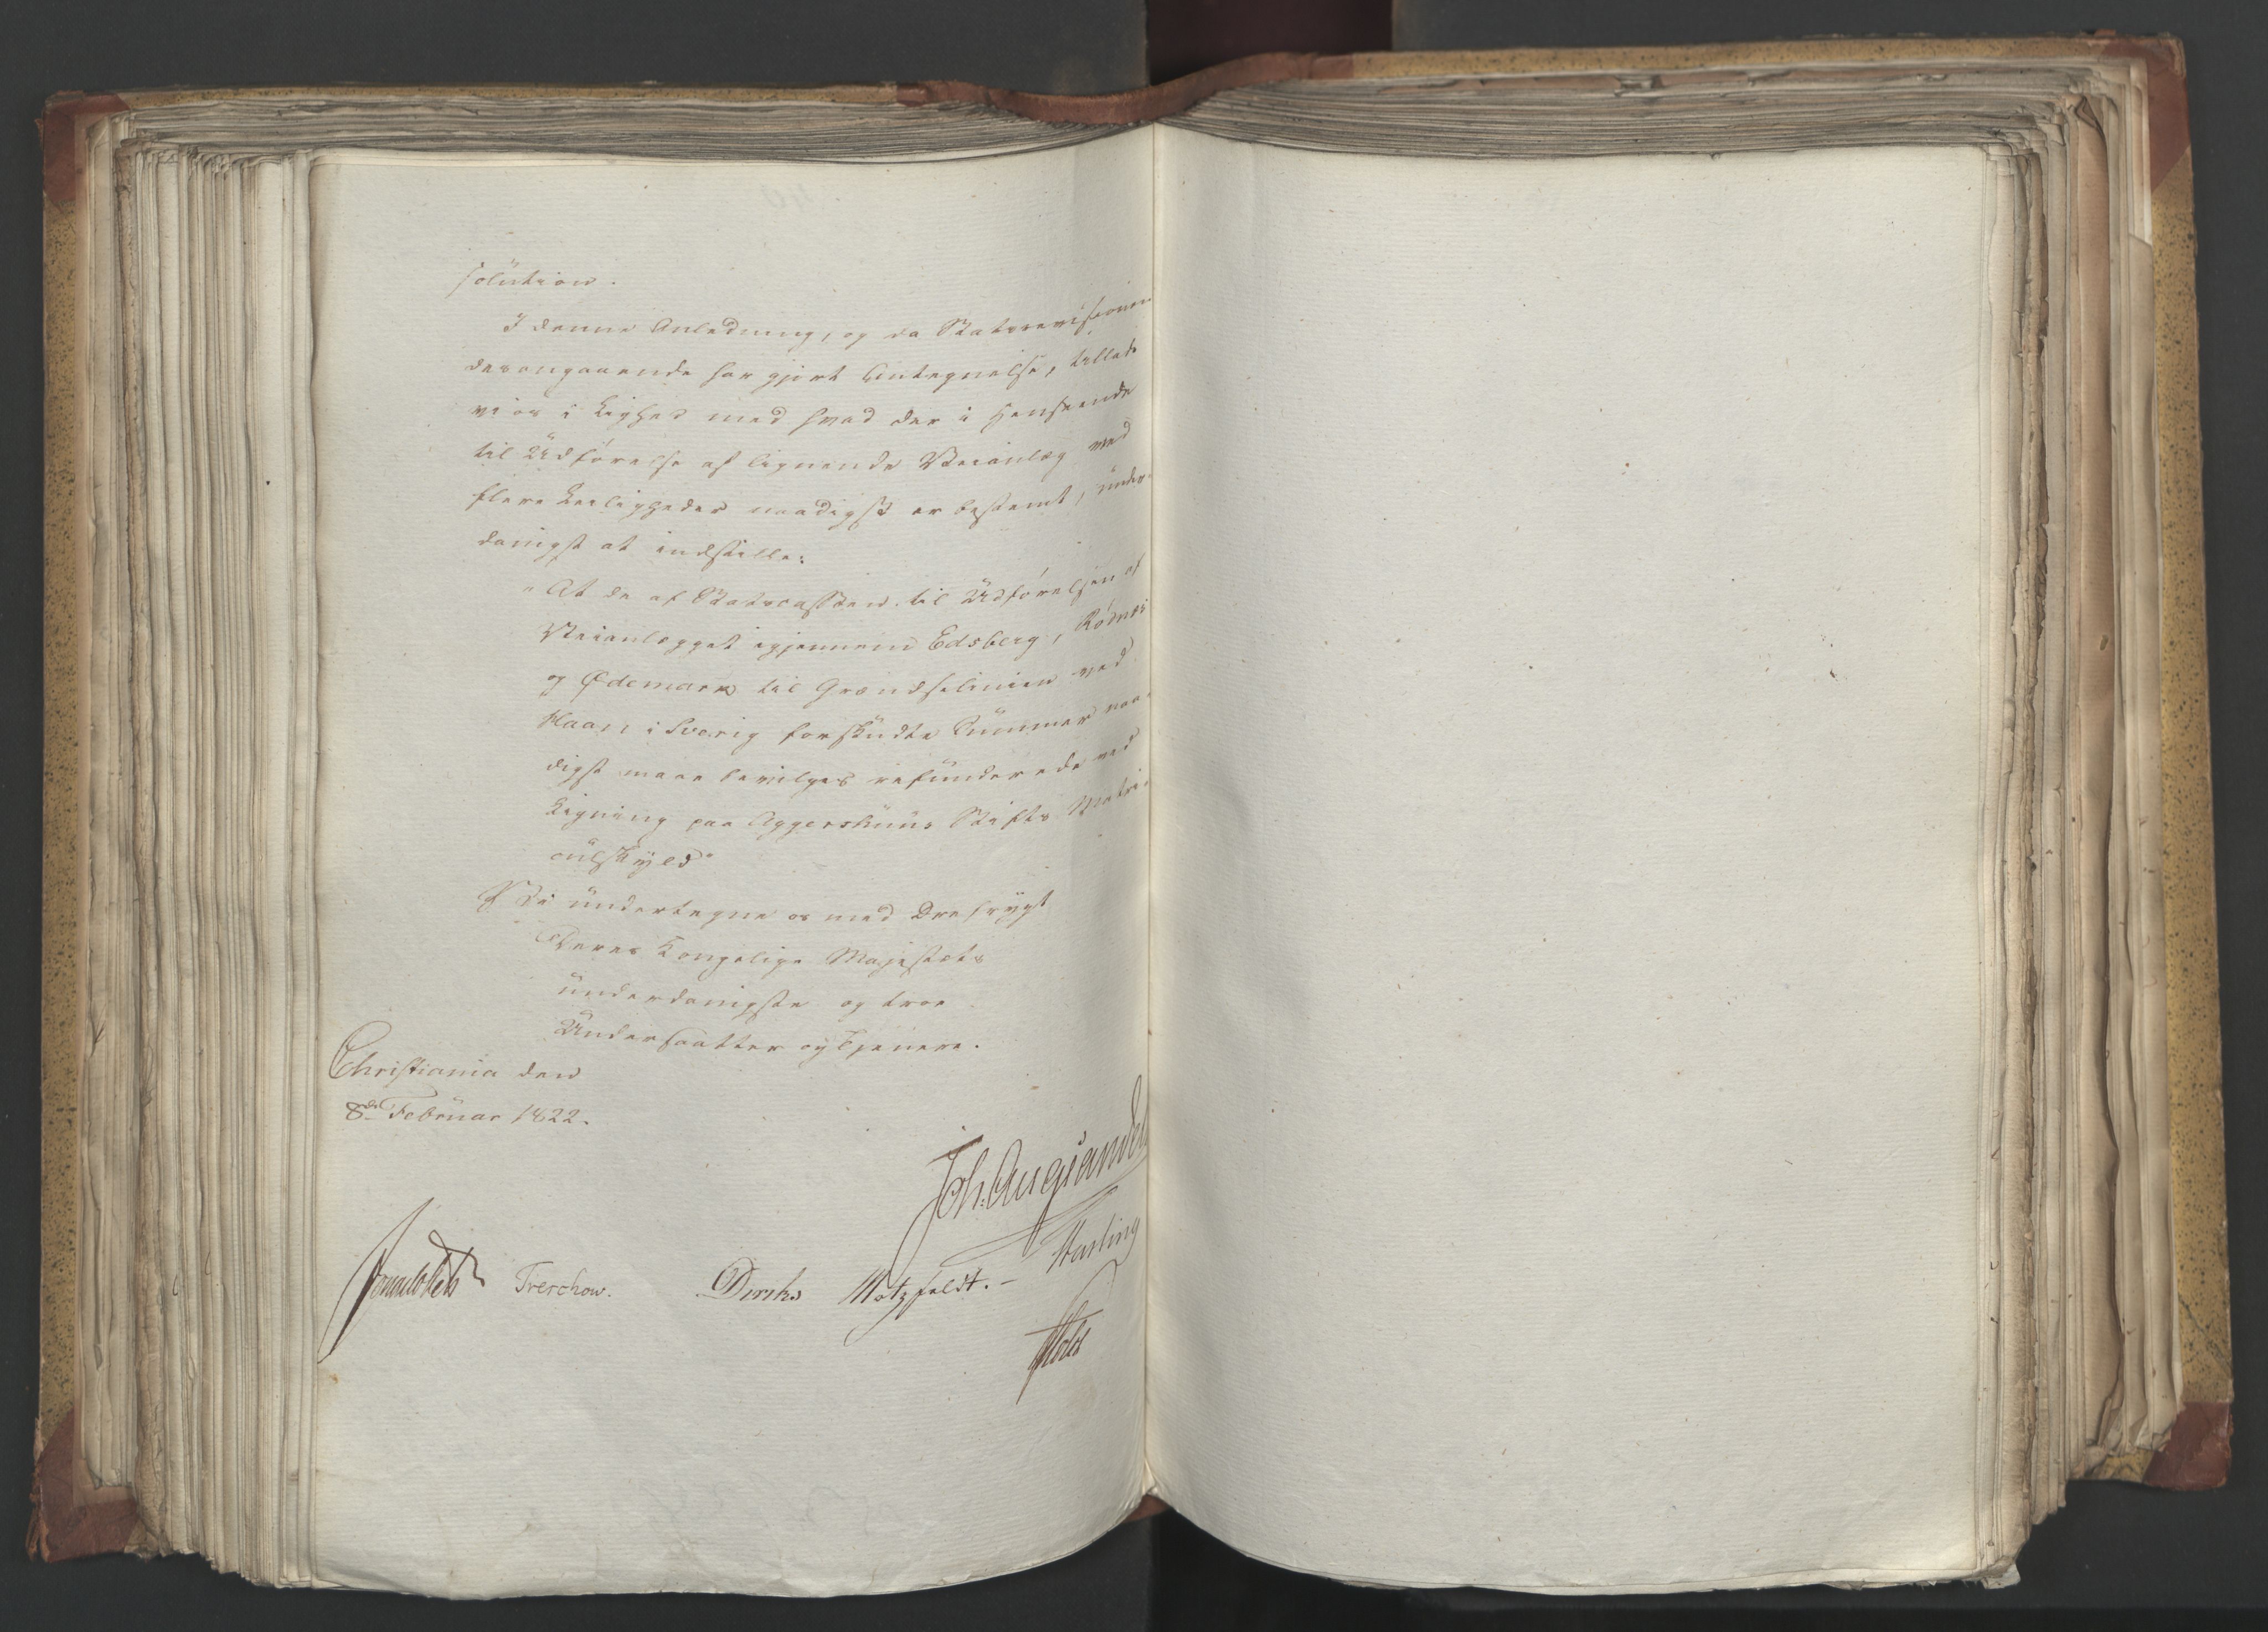 solution.
I denne Anledning, og da Statsrevisionen
desangaaende har gjort Antegnelse, tillade
vi os i Lighed med hvad der i Henseende
til Udførelse af lignende Veianlæg ved
flere Leiligheder naadigst er bestemt, under-
danigst at indstille:
"At de af Statscassen til Udførelsen af
Veianlægget igjennem Edsberg, Rødnes
og Ødemark til Grændselinien ved
Haan i Sverig forskudte Summer naa-
digst maae bevilges refunderede ved
Ligning paa Aggershuus Stifts Matri-
culskyld"
Vi undertegne os med Dybfrygt
Deres Kongelige Majestæts
underdanigste og troe
Undersaatter og Tjenere.
Christiania den
8de Februar 1822.
Joh. Aug. Sandels
Sommerhielm Treschow. Diriks Motzfeldt.- Fasting
Holst